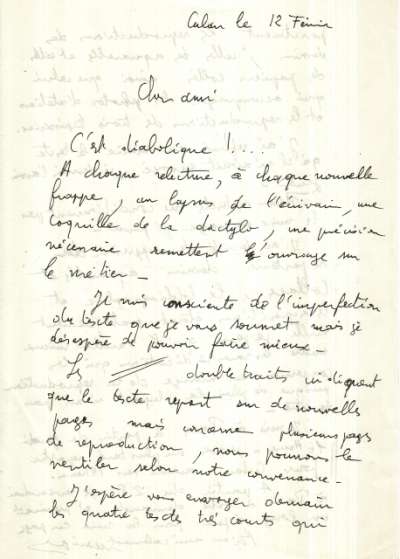 Calan le 12 Février
Cher ami
C'est diabolique !....
A chaque relecture, à chaque nouvelle
frappe, un lapsus de l'écrivain, une
coquille de la dactylo, une précision
nécessaire remettent l'ouvrage sur
le métier -
Je suis consciente de l'imperfection
du texte que je vous soumet mais je
désespère de pouvoir faire mieux -
Les double traits indiquent
que le texte repart sur de nouvelles
pages mais comme plusieurs pages
de reproduction, nous pouvons le
ventiler selon notre convenance -
J'espère vous envoyer demain
les quatre textes très courts qui